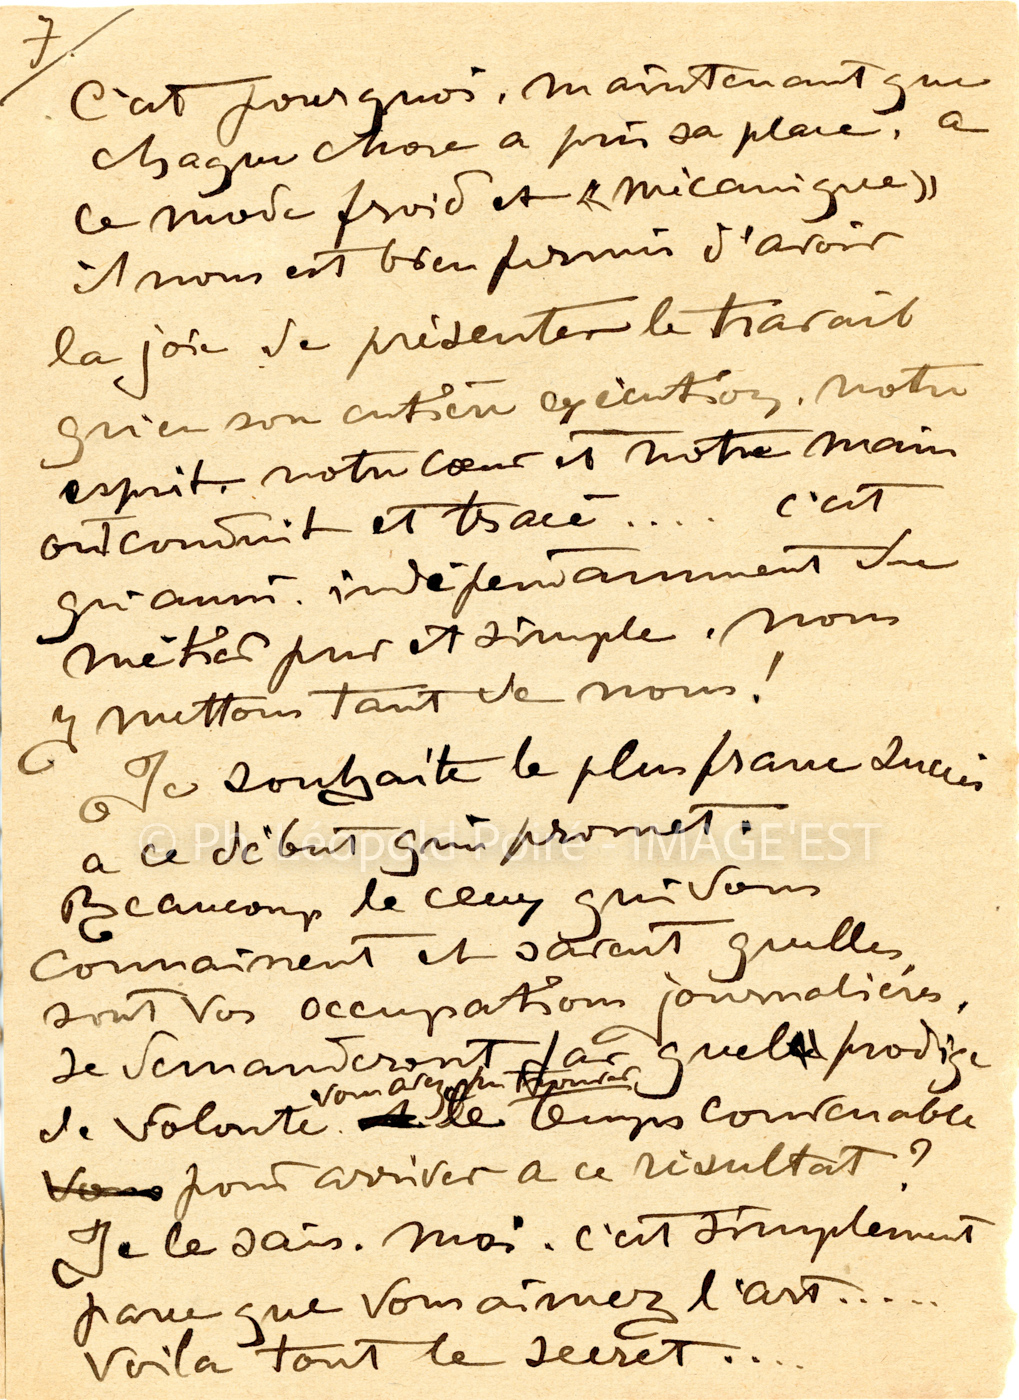 7.
C'est pourquoi, maintenant que
chaque chose a pris sa place, a
ce mode froid et «mécanique»
il nous est bien permis d'avoir
la joie de présenter le travail
qu'en son entière exécution, notre
esprit, notre cœur et notre main
ont conduit et tracé .... c'est
qu'aussi, indépendamment du
métier pur et simple, nous
y mettons tant de nous!
Je souhaite le plus franc succès
a ce début qui promet.
© Ph. Léopold Poiré - IMAGE'EST
Beaucoup de ceux qui vous
connaissent et savent quelles
sont vos occupations journalières,
se demanderont par quel prodige
vous avez pu trouver
de volonté le temps convenable
vous pour arriver a ce résultat?
Je le sais, moi, c'est simplement
parce que vous aimez l'art.....
Voila tout le secret....